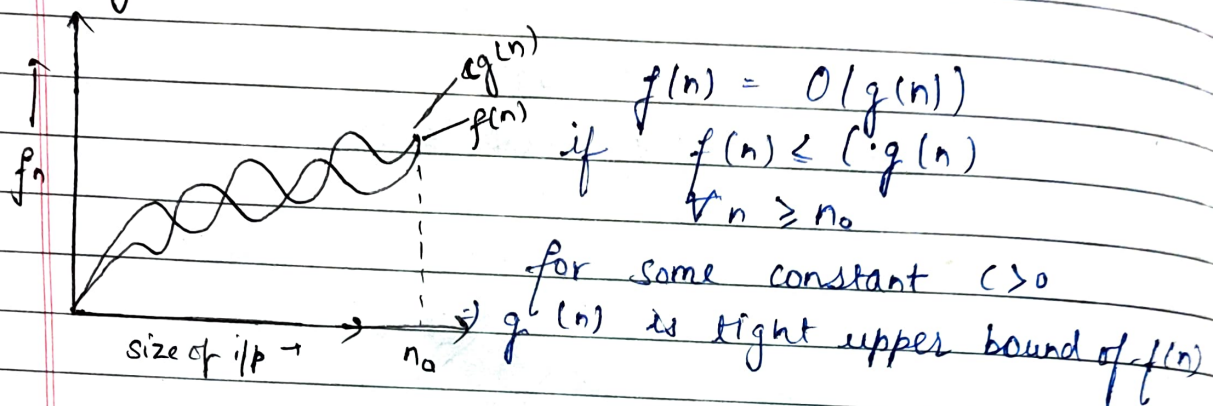 cg(n)
f(n)
fn
size of i/p →
n₀
f(n) = O(g(n))
if f(n) ≤ C·g(n)
∀ n ≥ n₀
for some constant C>0
⇒ g(n) is tight upper bound of f(n)